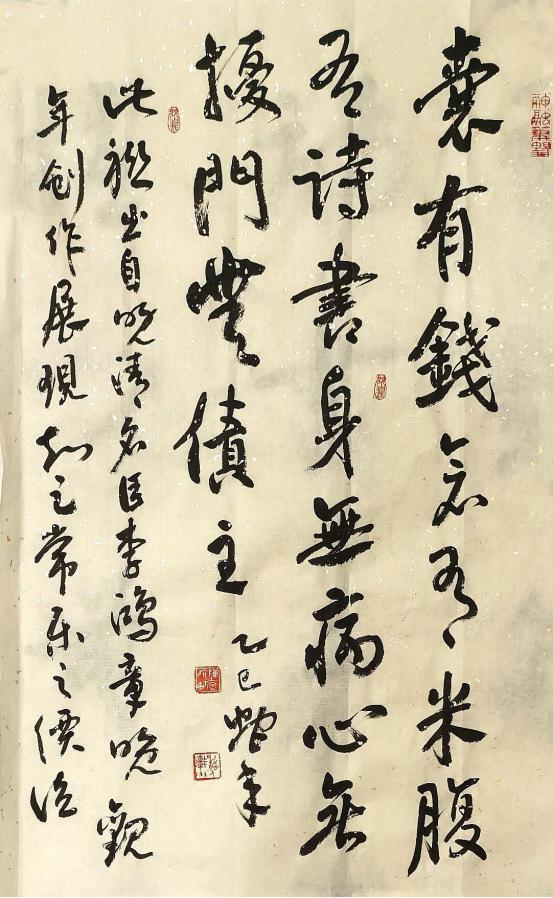 囊有錢倉有米腹
有詩書身無病心無
擾門無債主
乙巳蛇年
此聯出自晚清名臣李鴻章晚觀
年創作展現知足常樂之價值